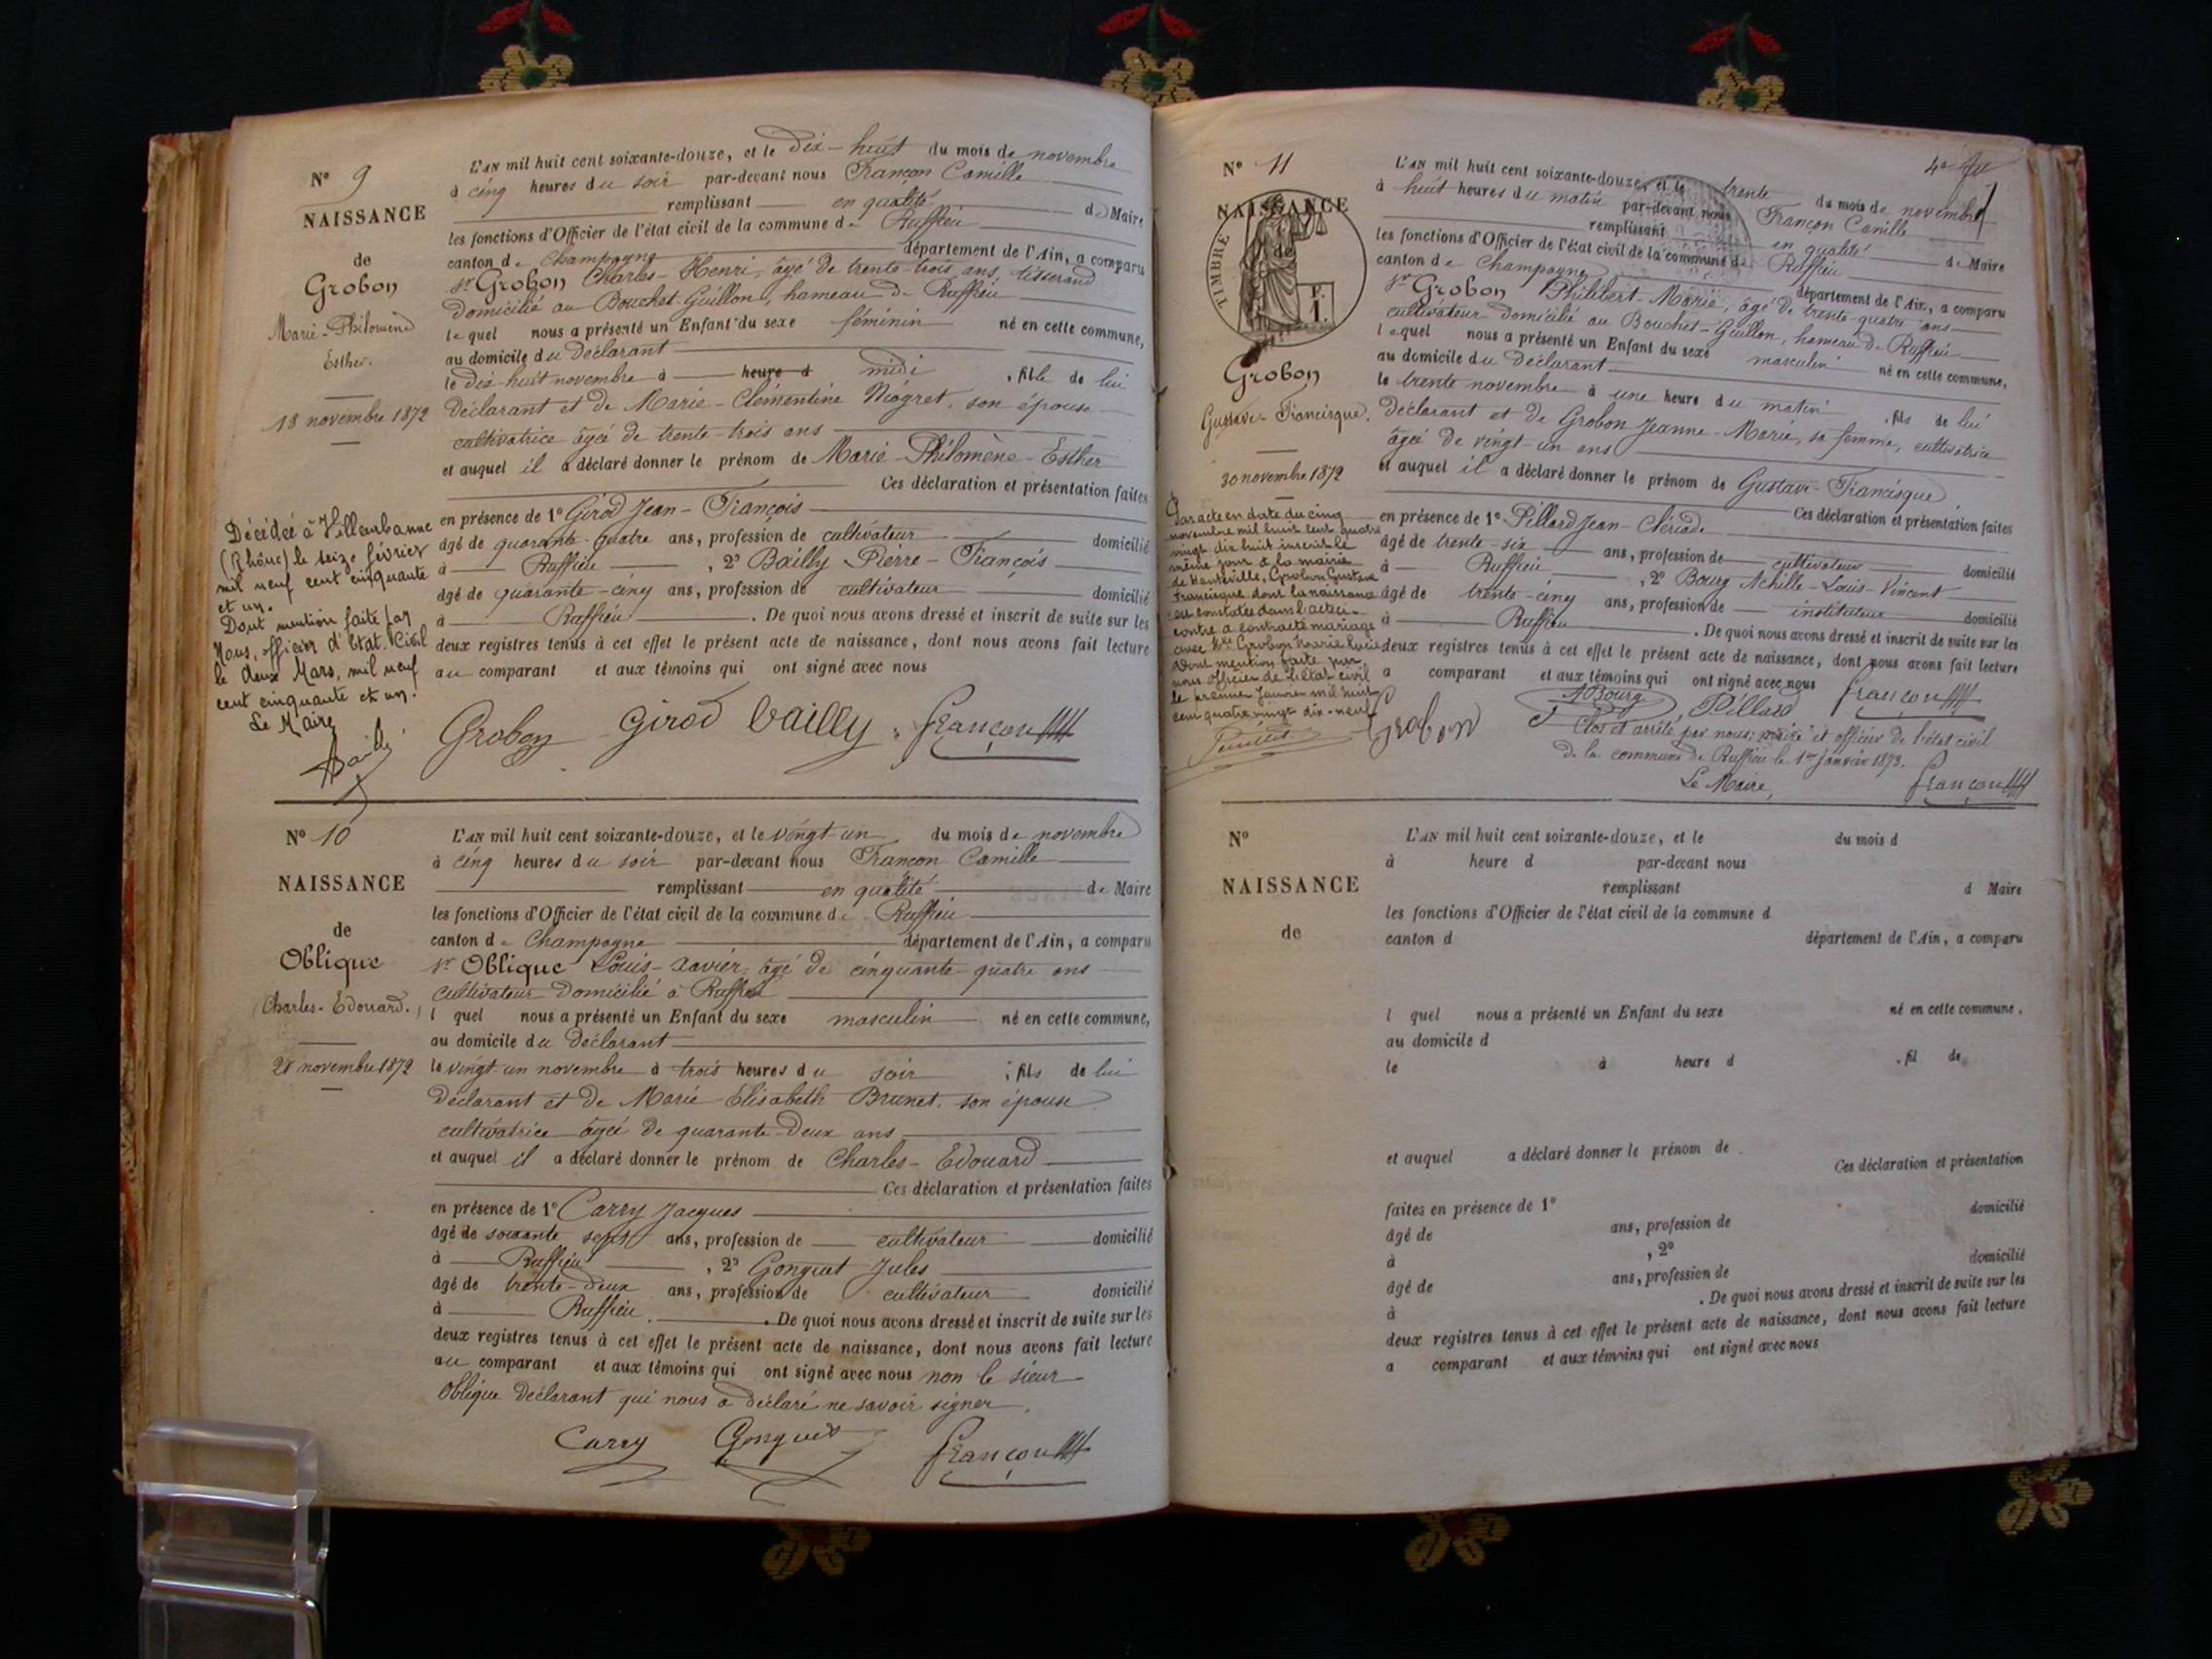 N° 9
NAISSANCE
de
Grobon
Marie-Philomène
Esther.
18 novembre 1872
L'AN mil huit cent soixante-douze, et le dix-huit du mois de novembre
à cinq heures du soir par-devant nous Françon Camille
remplissant en qualité de Maire
les fonctions d'Officier de l'état civil de la commune de Ruffieu
canton de Champagne département de l'Ain, a comparu
sr Grobon Charles-Henri, âgé de trente-trois ans, tisserand
domicilié au Bouchet-Guillon, hameau de Ruffieu
lequel nous a présenté un Enfant du sexe féminin né en cette commune,
au domicile du déclarant
le dix-huit novembre à heure d midi , fille de lui
déclarant et de Marie-Clémentine Niogret, son épouse
cultivatrice âgée de trente-trois ans
et auquel il a déclaré donner le prénom de Marie-Philomène-Esther
Ces déclaration et présentation faites
en présence de 1° Girod Jean-François
âgé de quarante-quatre ans, profession de cultivateur domicilié
à Ruffieu , 2° Bailly Pierre-François
âgé de quarante-cinq ans, profession de cultivateur domicilié
à Ruffieu . De quoi nous avons dressé et inscrit de suite sur les
deux registres tenus à cet effet le présent acte de naissance, dont nous avons fait lecture
au comparant et aux témoins qui ont signé avec nous
Grobon Girod Bailly Françon
Décédée à Villeurbanne
(Rhône) le seize février
mil neuf cent cinquante
et un.
Dont mention faite par
Nous, officier d'Etat-Civil
le deux Mars, mil neuf
cent cinquante et un.
Le Maire
N° 10
NAISSANCE
de
Oblique
Charles-Edouard.
21 novembre 1872
L'AN mil huit cent soixante-douze, et le vingt-un du mois de novembre
à cinq heures du soir par-devant nous Françon Camille
remplissant en qualité de Maire
les fonctions d'Officier de l'état civil de la commune de Ruffieu
canton de Champagne département de l'Ain, a comparu
sr Oblique Louis-Xavier, âgé de cinquante-quatre ans
cultivateur domicilié à Ruffieu
l quel nous a présenté un Enfant du sexe masculin né en cette commune,
au domicile du déclarant
le vingt-un novembre à trois heures du soir ; fils de lui
déclarant et de Marie Elisabeth Brunet, son épouse
cultivatrice âgée de quarante-deux ans
et auquel il a déclaré donner le prénom de Charles-Edouard
Ces déclaration et présentation faites
en présence de 1° Carry Jacques
âgé de soixante sept ans, profession de cultivateur domicilié
à Ruffieu , 2° Gonguet Jules
âgé de trente-deux ans, profession de cultivateur domicilié
à Ruffieu . De quoi nous avons dressé et inscrit de suite sur les
deux registres tenus à cet effet le présent acte de naissance, dont nous avons fait lecture
au comparant et aux témoins qui ont signé avec nous non le sieur
Oblique déclarant qui nous a déclaré ne savoir signer.
Carry Gonguet Françon
N° 11
NAISSANCE
de
TIMBRE
Grobon
Gustave-Francisque.
30 novembre 1872
L'AN mil huit cent soixante-douze, et le trente du mois de novembre
à huit heures du matin par-devant nous Françon Camille
remplissant en qualité de Maire
les fonctions d'Officier de l'état civil de la commune de Ruffieu
canton de Champagne département de l'Ain, a comparu
sr Grobon Philibert-Marie, âgé de trente-quatre ans
cultivateur domicilié au Bouchet-Guillon, hameau de Ruffieu
lequel nous a présenté un Enfant du sexe masculin né en cette commune,
au domicile du déclarant
le trente novembre à une heure du matin , fils de lui
déclarant et de Grobon Jeanne-Marie, sa femme, cultivatrice
âgée de vingt-un ans
et auquel il a déclaré donner le prénom de Gustave-Francisque
Ces déclaration et présentation faites
en présence de 1° Pillard Jean-Clériade
âgé de trente-six ans, profession de cultivateur domicilié
à Ruffieu , 2° Bourg Achille-Louis-Vincent
âgé de trente-cinq ans, profession de instituteur domicilié
à Ruffieu . De quoi nous avons dressé et inscrit de suite sur les
deux registres tenus à cet effet le présent acte de naissance, dont nous avons fait lecture
a comparant et aux témoins qui ont signé avec nous
Grobon ABourg Pillard Françon
Clos et arrêté par nous, maire et officier de l'état civil
de la commune de Ruffieu le 1er janvier 1873.
Le Maire, Françon
Par acte en date du cinq
novembre mil huit cent quatre
vingt dix huit inscrit le
même jour à la mairie
de Hauteville, Grobon Gustave
Francisque dont la naissance
est constatée dans l'acte ci-
contre a contracté mariage
avec Mlle Grobon Marie Lucie
Dont mention faite par
nous officier de l'état civil
le premier Janvier mil huit
cent quatre vingt-dix-neuf
N°
NAISSANCE
de
L'AN mil huit cent soixante-douze, et le du mois d
à heure d par-devant nous
remplissant d Maire
les fonctions d'Officier de l'état civil de la commune d
canton d département de l'Ain, a comparu
l quel nous a présenté un Enfant du sexe né en cette commune,
au domicile d
le à heure d , fil de
et auquel a déclaré donner le prénom de
Ces déclaration et présentation
faites en présence de 1°
âgé de ans, profession de domicilié
à , 2°
âgé de ans, profession de domicilié
à . De quoi nous avons dressé et inscrit de suite sur les
deux registres tenus à cet effet le présent acte de naissance, dont nous avons fait lecture
a comparant et aux témoins qui ont signé avec nous